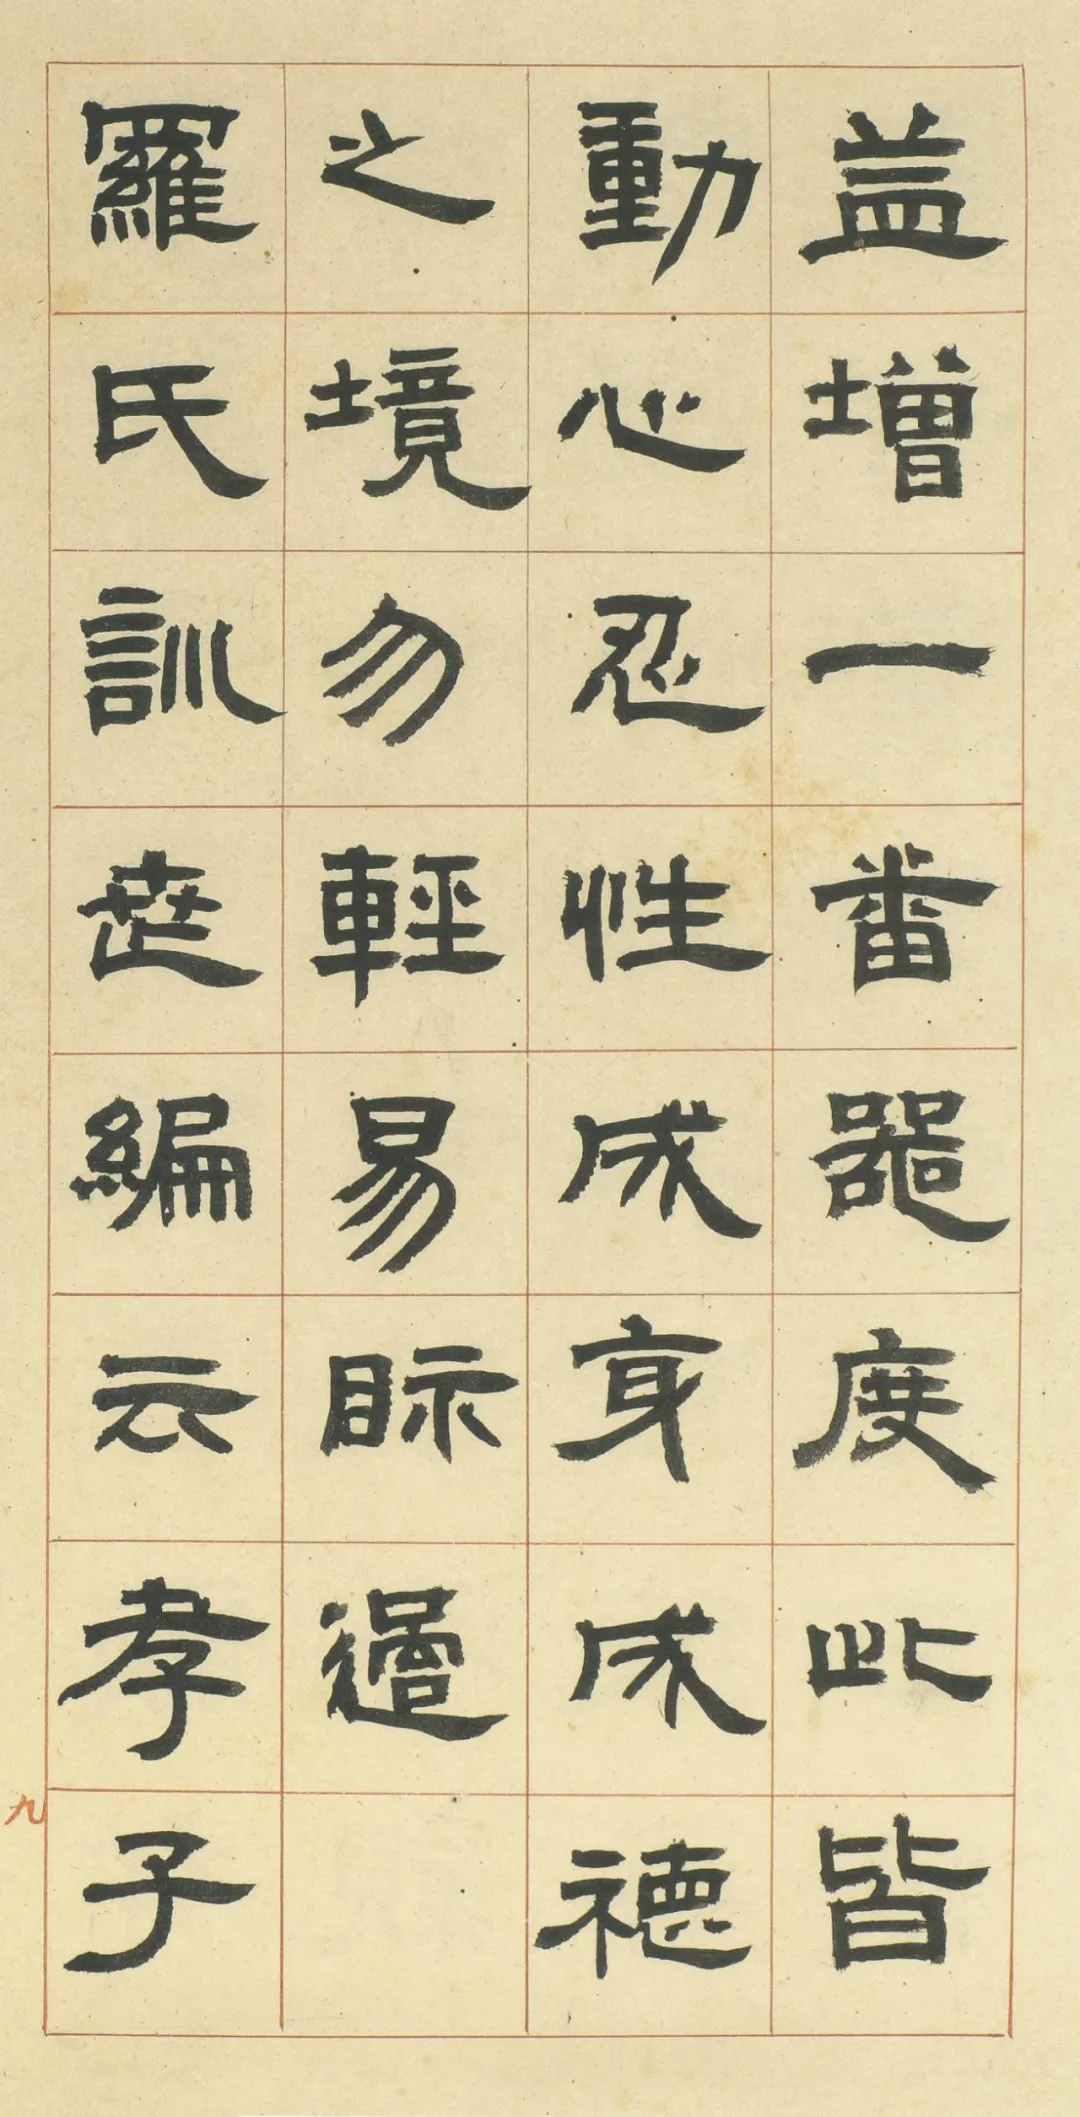 益增一番器度此皆
動心忍性成身成德
之境勿輕易眎過
羅氏訓世編云孝子
九